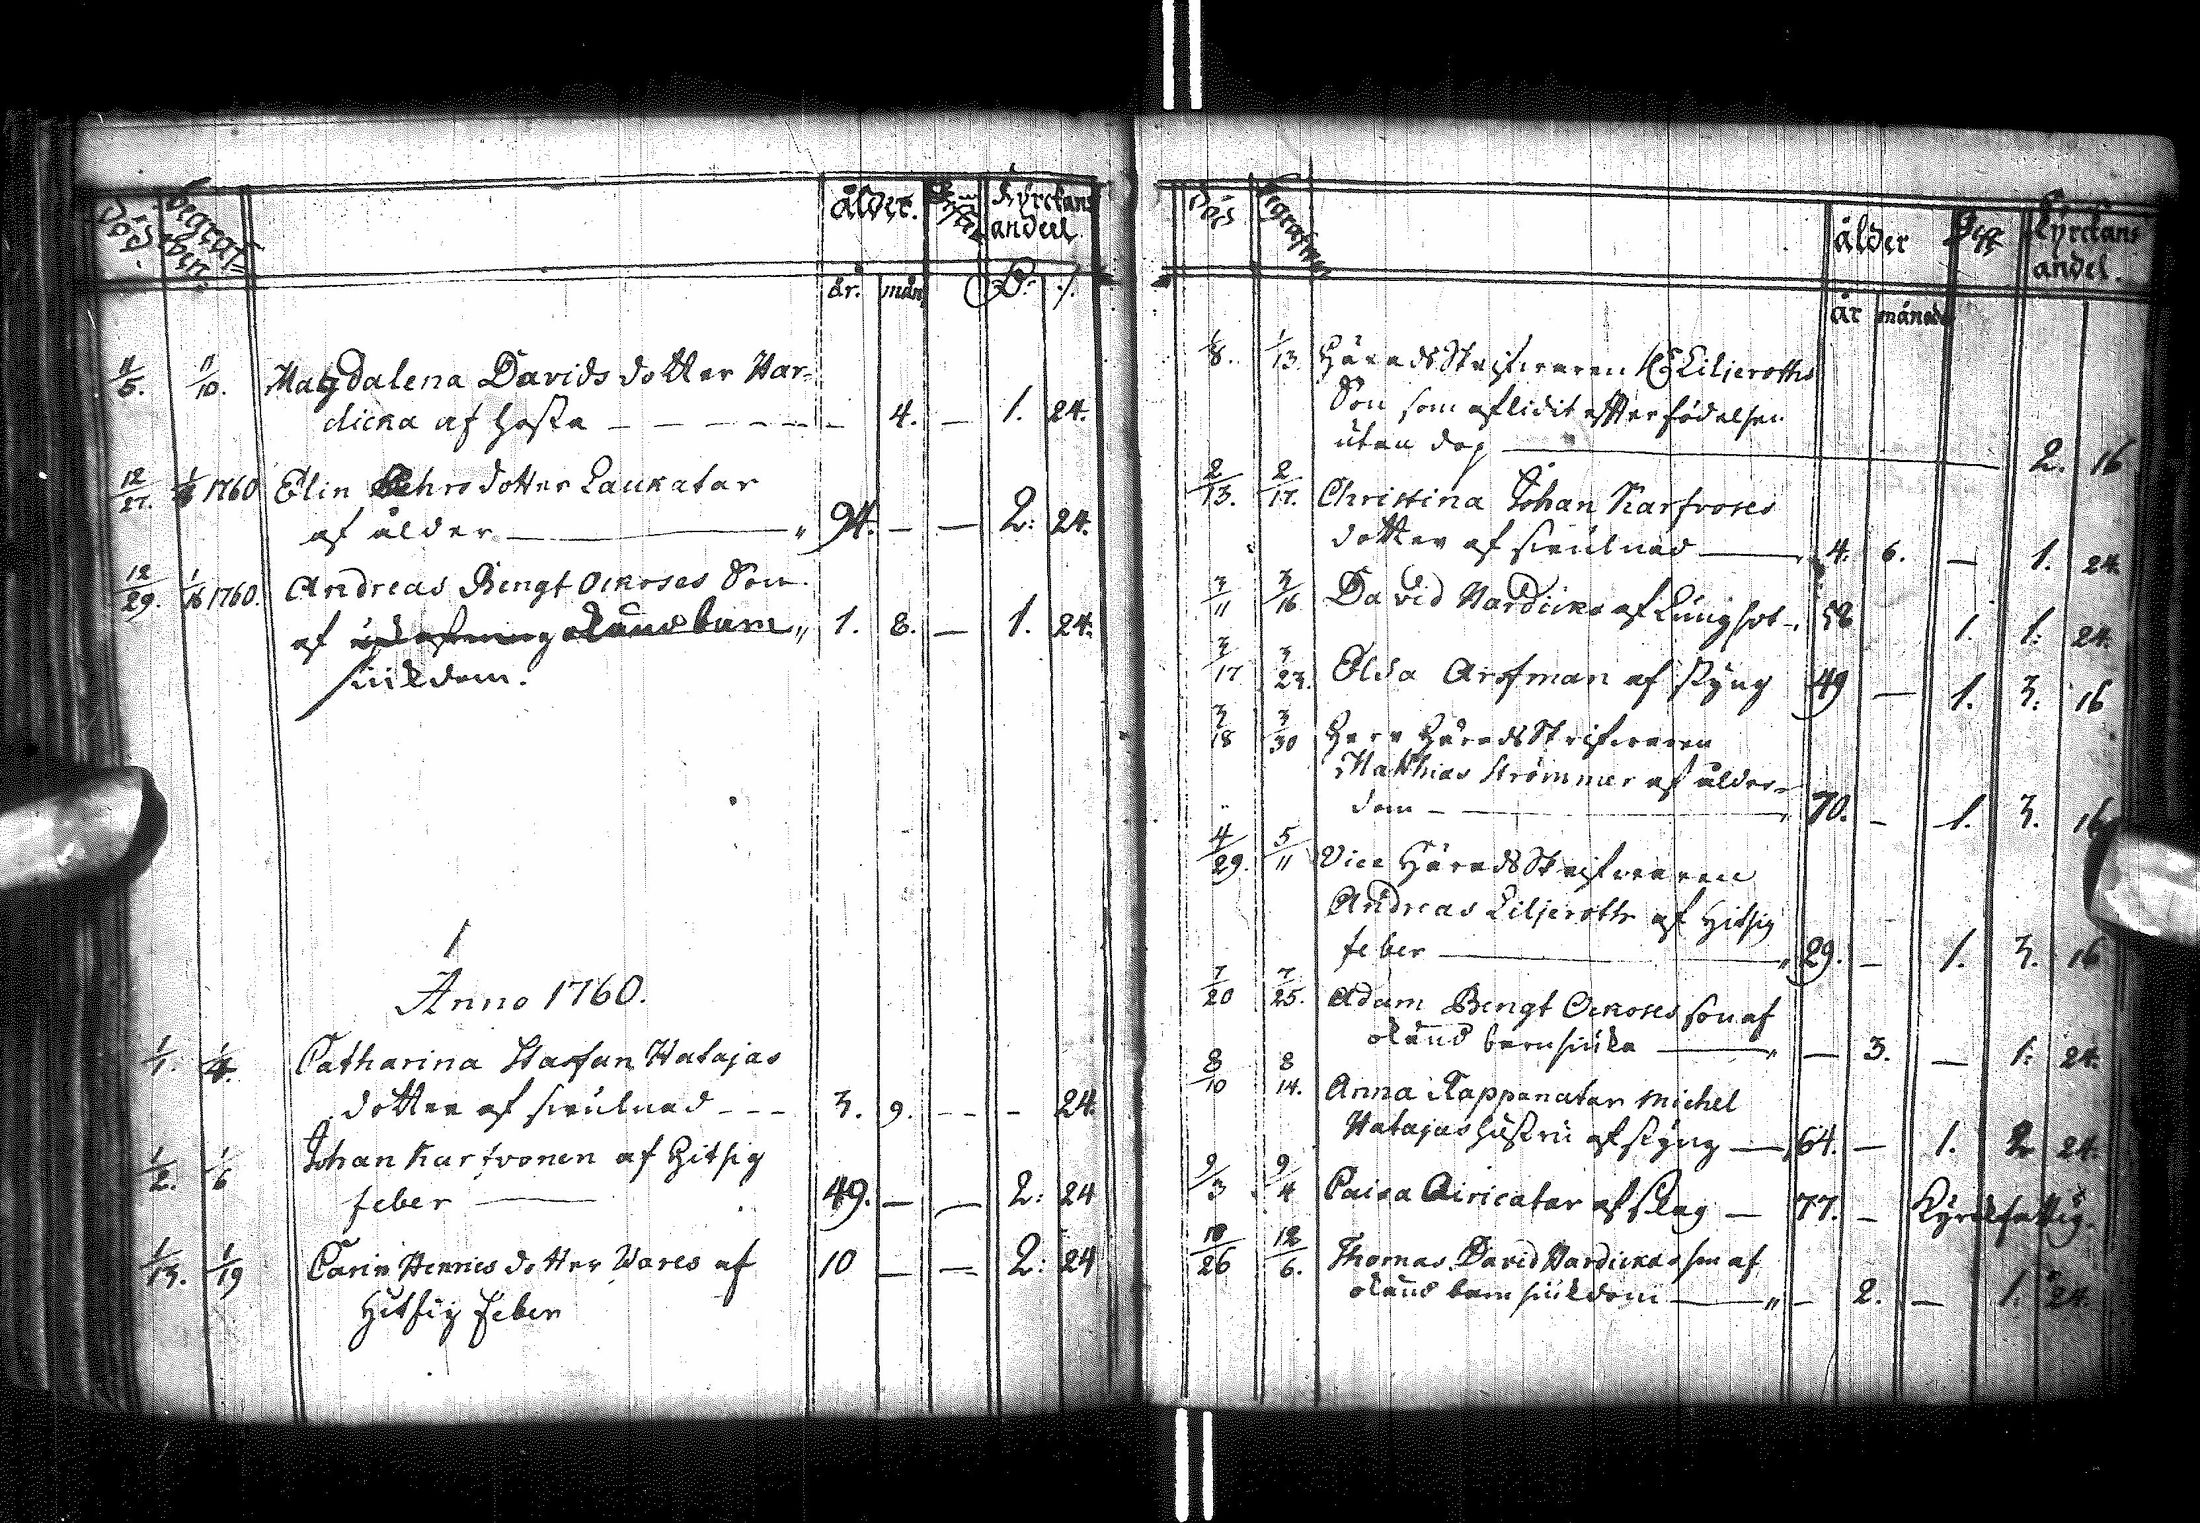 död. begraf=ben ålder. Kyrckans andeel.
år. mån.
11/5. 11/10. Magdalena Davids dotter Var=
dicka af Hosta 4. — 1. 24.
12/27. 1/6 1760 Elin Pehrs dotter Laukatar
af ålder 94. — — 2: 24.
12/29. 1/6 1760. Andreas Bengt Ockoses Son
af okänd barn 1. 8. — 1. 24.
siukdom.
Anno 1760.
1/1. 1/4. Catharina Staffan Hatajas
dotter af 3. 9. - - - 24.
1/2. 1/6 Johan Karfvonen af Hitsig
feber 49. — — 2: 24
1/13. 1/19 Carin Hennes dotter Wares af 10 — — 2: 24
Hitsig feber
död begrafven ålder Kyrckans andel.
år månad
1/8. 1/13. HäradsSkrifvaren Liljeroths
Son som aflidit efter födelsen
utan dop 2. 16
2/13. 2/17. Christina Johan Karfvoses
dotter af 4. 6. — 1. 24.
3/11 3/16 David Vardicka af Lungsot 58 1. 1: 24.
3/17 3/23. Elsa Arfman af styng 49 — 1. 3: 16
3/18 3/30 Herr HäradsSkrifvaren
Matthias Strömmer af ålder=
dom 70. - 1. 3. 16
4/29. 5/11 Vice HäradsSkrifvaren
Andreas Liljeroth af Hitsig
feber 29. — 1. 3. 16
7/20 7/25. Adam Bengt Ockoses son af
okänd barnsiuka — 3. — 1: 24.
8/10 8/14. Anna Kappanatar Michel
Hatajas hustru af styng 64. — 1. 2 24.
9/3 9/4 Caisa Airicatar af slag — 77. — Kyrckfattig.
10/26 12/6. Thomas David Vardickas son af
okänd barn siukdom — 2. — 1. 24.